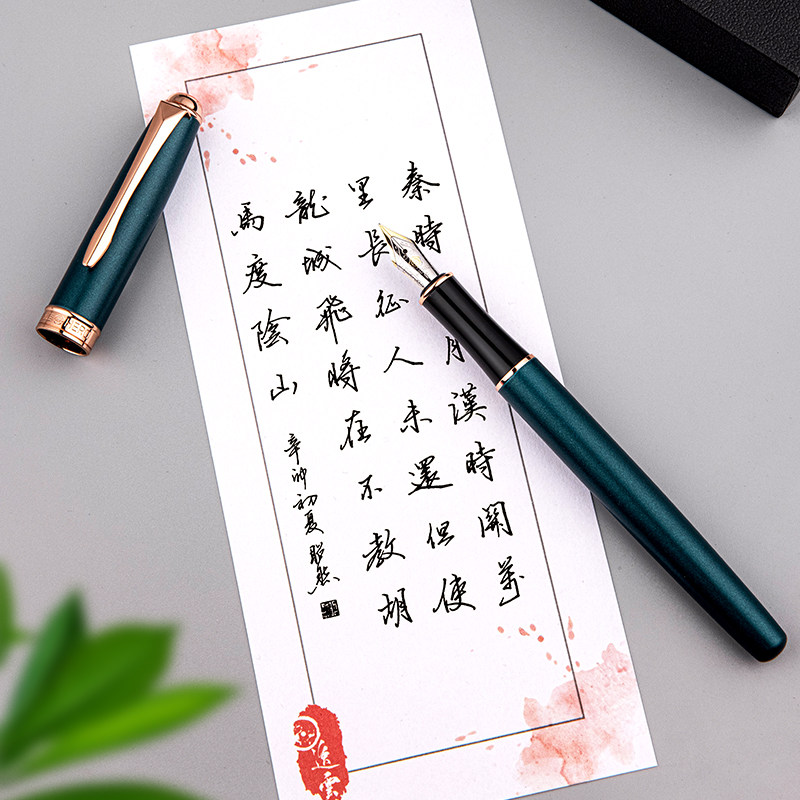 秦時月漢時關萬
里長征人未還但使
龍城飛將在不教胡
馬度陰山
辛卯初夏